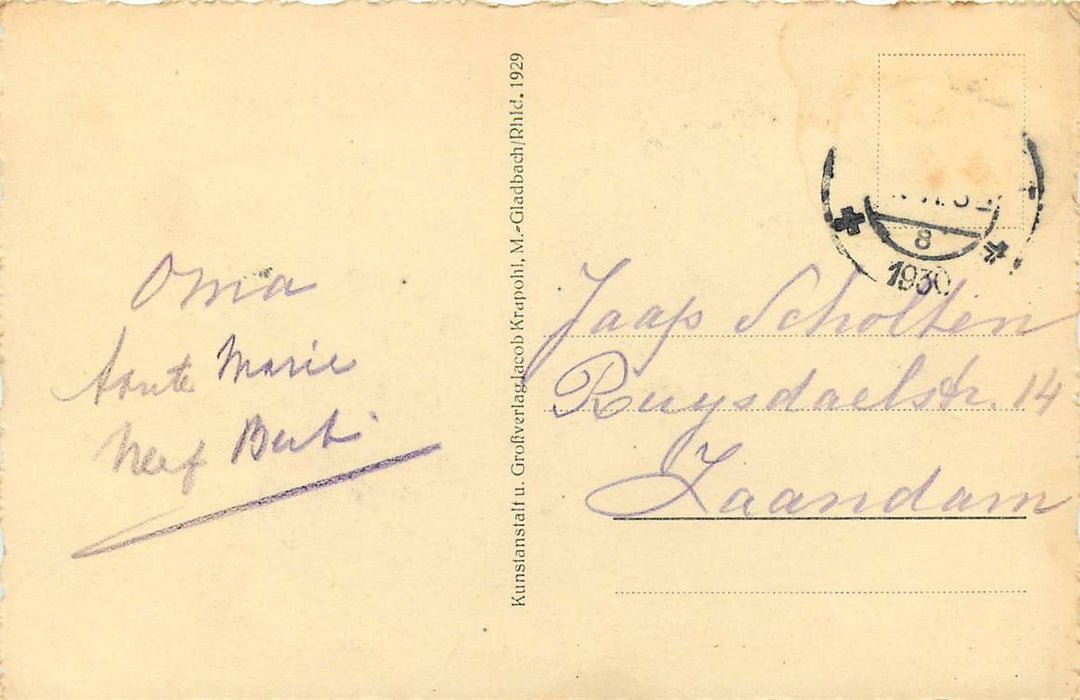 Oma
tante Marie
Neef Bert
Kunstanstalt u. Großverlag Jacob Krapohl, M.-Gladbach/Rhld. 1929
8
1930
Jaap Scholten
Ruysdaelstr. 14
Zaandam